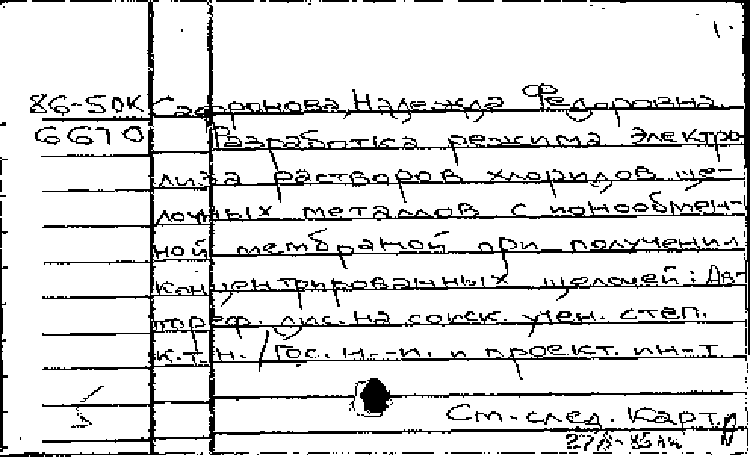 1.
86-50К Сафронова, Надежда Федоровна.
6670 Разработка режима электро-
лиза растворов хлоридов ще-
лочных металлов с ионообмен-
ной мембраной при получении
концентрированных щелочей: Ав-
тореф. дис. на соиск. учен. степ.
к.т.н. / Гос. н.-и. и проект. ин-т
См. след. карт.